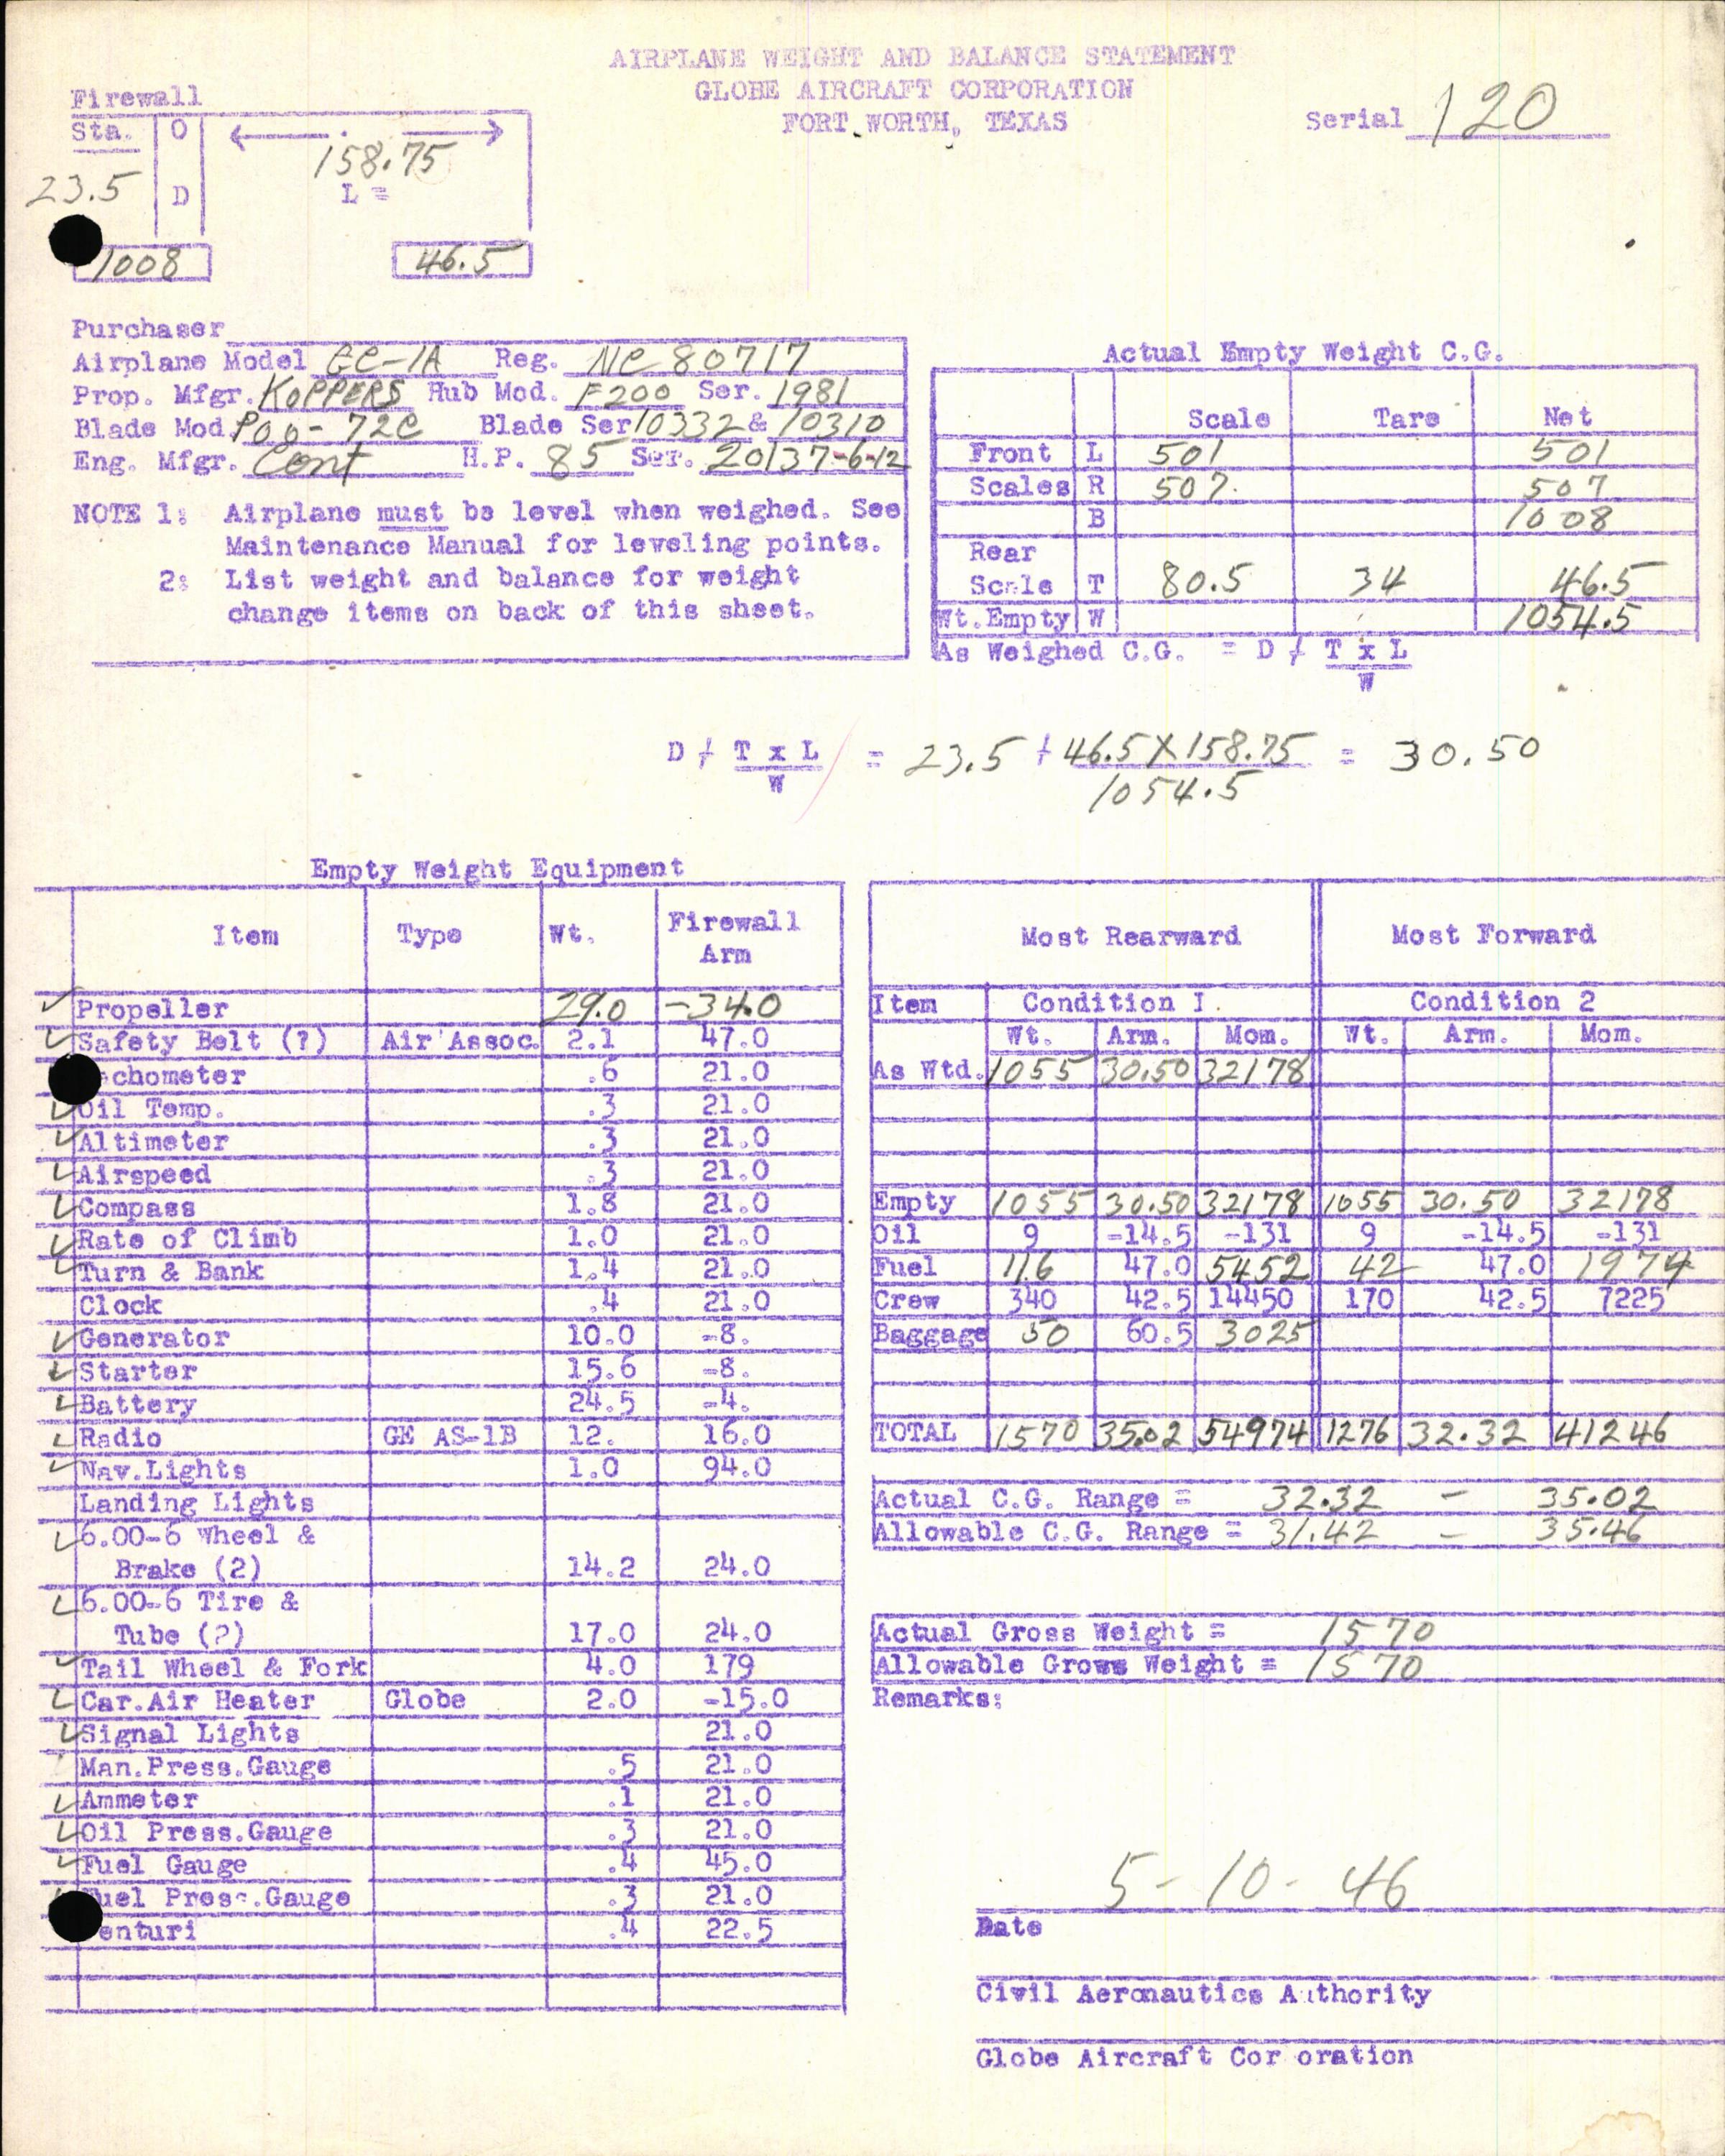 AIRPLANE WEIGHT AND BALANCE STATEMENT
GLOBE AIRCRAFT CORPORATION
FORT WORTH, TEXAS
Serial 120
Firewall
Sta. O
158.75
23.5 D L =
1008 46.5
Purchaser
Airplane Model GC-1A Reg. NC 80717
Prop. Mfgr. KOPPERS Hub Mod. F200 Ser. 1981
Blade Mod. Blade Ser 10332 & 10310
Eng. Mfgr. Cont H.P. 85 Ser. 20137-6-12
NOTE 1: Airplane must be level when weighed. See
Maintenance Manual for leveling points.
2: List weight and balance for weight
change items on back of this sheet.
Actual Empty Weight C.G.
Scale Tare Net
Front L 501 501
Scales R 507. 507
B 1008
Rear
Scale T 80.5 34 46.5
Wt. Empty W 1054.5
As Weighed C.G. = D / T x L
W
D / T x L = 23.5 + 46.5 X 158.75 = 30.50
W 1054.5
Empty Weight Equipment
Item Type Wt. Firewall
Arm
Propeller 29.0 -34.0
Safety Belt (?) Air Assoc. 2.1 47.0
chometer .6 21.0
Oil Temp. .3 21.0
Altimeter .3 21.0
Airspeed .3 21.0
Compass 1.8 21.0
Rate of Climb 1.0 21.0
Turn & Bank 1.4 21.0
Clock .4 21.0
Generator 10.0 -8.
Starter 15.6 -8.
Battery 24.5 -4.
Radio GE AS-1B 12. 16.0
Nav.Lights 1.0 94.0
Landing Lights
6.00-6 Wheel &
Brake (2) 14.2 24.0
6.00-6 Tire &
Tube (2) 17.0 24.0
Tail Wheel & Fork 4.0 179
Car.Air Heater Globe 2.0 -15.0
Signal Lights 21.0
Man.Press.Gauge .5 21.0
Ammeter .1 21.0
Oil Press.Gauge .3 21.0
Fuel Gauge .4 45.0
Fuel Press.Gauge .3 21.0
enturi .4 22.5
Most Rearward Most Forward
Item Condition I. Condition 2
Wt. Arm. Mom. Wt. Arm. Mom.
As Wtd. 1055 30.50 32178
Empty 1055 30.50 32178 1055 30.50 32178
Oil 9 -14.5 -131 9 -14.5 -131
Fuel 116 47.0 5452 42 47.0 1974
Crew 340 42.5 14450 170 42.5 7225
Baggage 50 60.5 3025
TOTAL 1570 35.02 54974 1276 32.32 41246
Actual C.G. Range = 32.32 - 35.02
Allowable C.G. Range = 31.42 - 35.46
Actual Gross Weight = 1570
Allowable Gross Weight = 1570
Remarks:
5-10-46
Date
Civil Aeronautics Authority
Globe Aircraft Cor oration